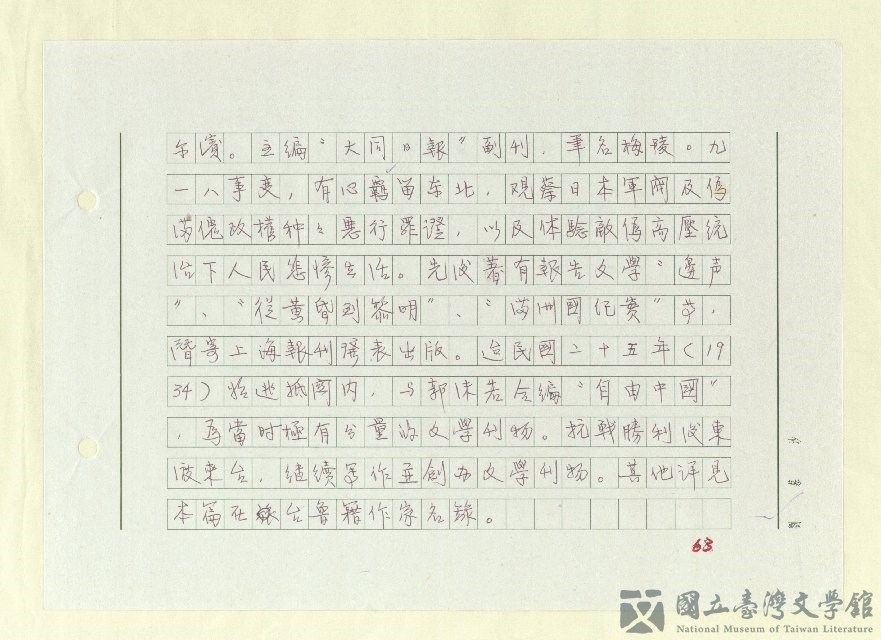 尔濱。主編“大同日報”副刊，筆名梅陵。九
一八事变，有心羁留东北，观察日本軍閥及伪
满傀政權种々悪行罪證，以及体驗敵伪高壓統
治下人民悲惨生活。先后著有報告文學“边声
”、“從黄昏到黎明”、“满洲國纪實”等，
潜寄上海報刊發表出版。迨民國二十五年（19
34）始逃抵関内，与郭沫若合編“自由中國”
，為當时極有分量的文學刊物。抗戰勝利後東
渡来台，继续写作並創办文學刊物。其他详見
本篇在台鲁籍作家名錄。
63
國立臺灣文學館
National Museum of Taiwan Literature